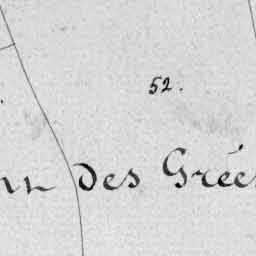 52.
des Grées